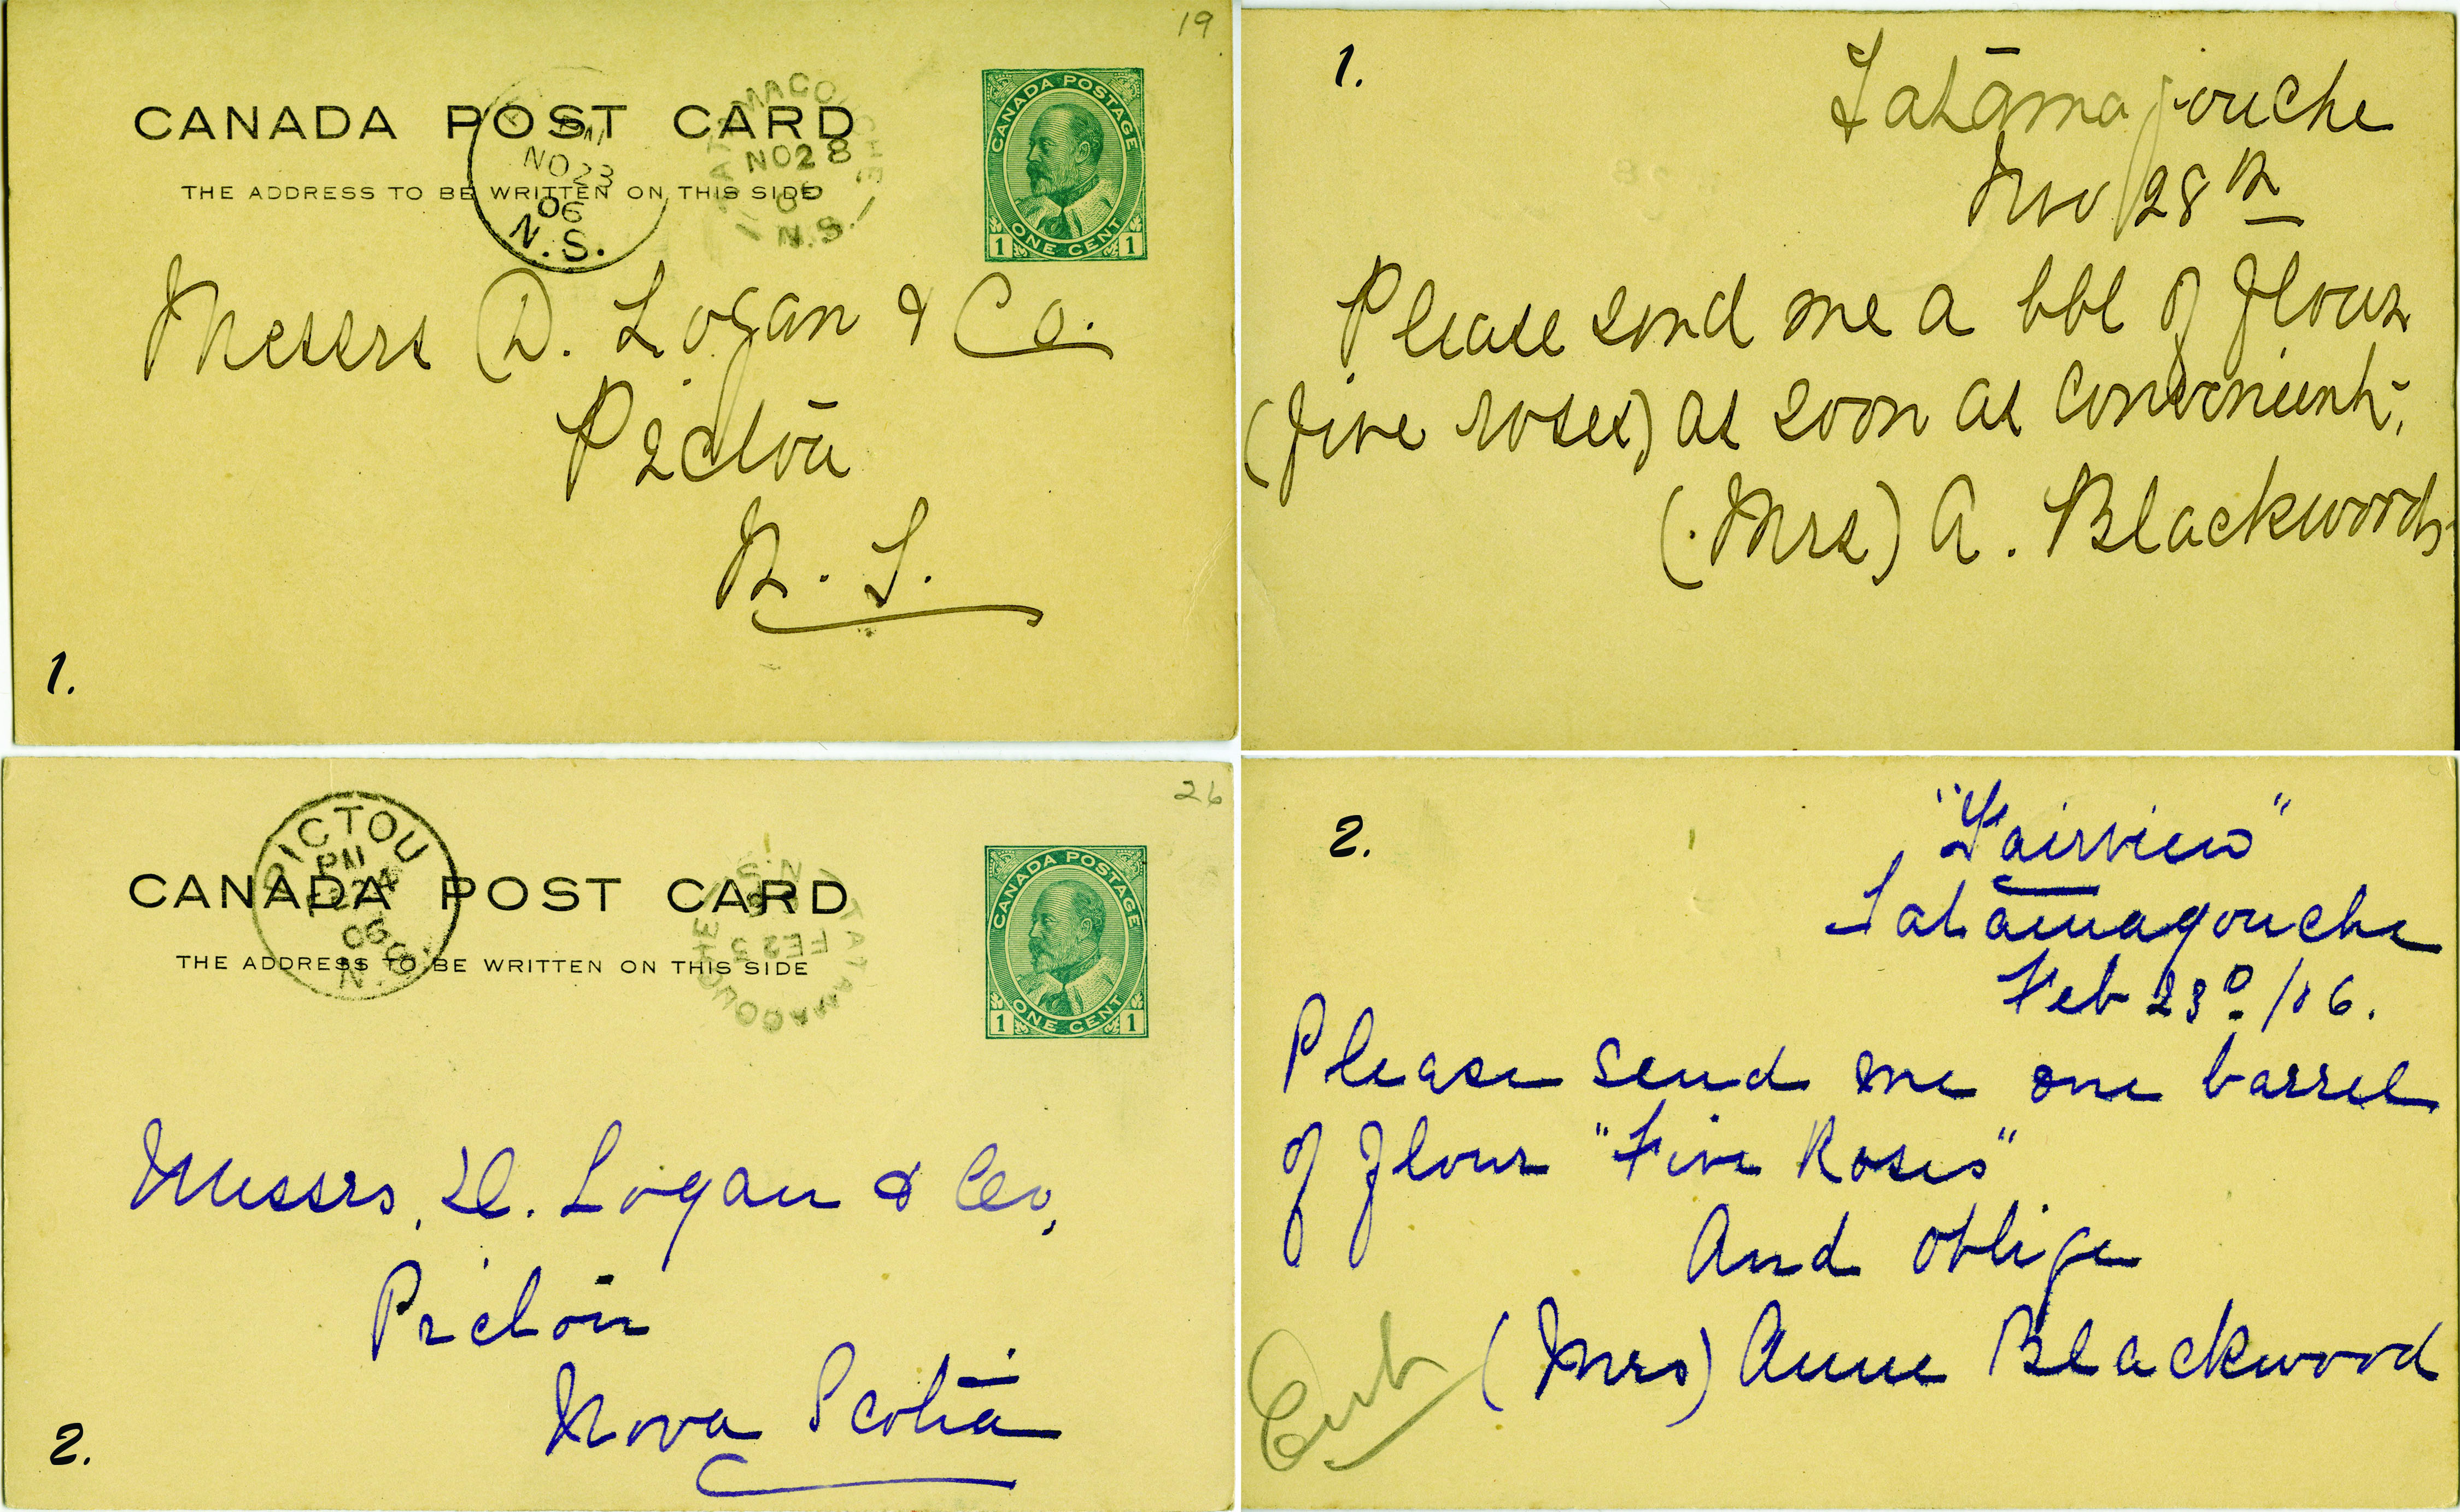 19
CANADA POST CARD
THE ADDRESS TO BE WRITTEN ON THIS SIDE
PM
NO 28
06
N.S.
TATAMAGOUCHE
NO 28
06
N.S.
CANADA POSTAGE
1 ONE CENT 1
Messrs D. Logan & Co.
Pictou
N. S.
1.
1.
Tatamagouche
Nov 28th
Please send me a bbl of flour
(five roses) as soon as convenient.
(Mrs) A. Blackwood
26
PICTOU
PM
FE 24
06
N.S.
CANADA POST CARD
THE ADDRESS TO BE WRITTEN ON THIS SIDE
TATAMAGOUCHE
FE 23
N.S.
CANADA POSTAGE
1 ONE CENT 1
Messrs, D. Logan & Co,
Pictou
Nova Scotia
2.
2.
"Fairview"
Tatamagouche
Feb 23d/06.
Please send me one barrel
of flour "Five Roses"
And oblige
(Mrs) Anne Blackwood